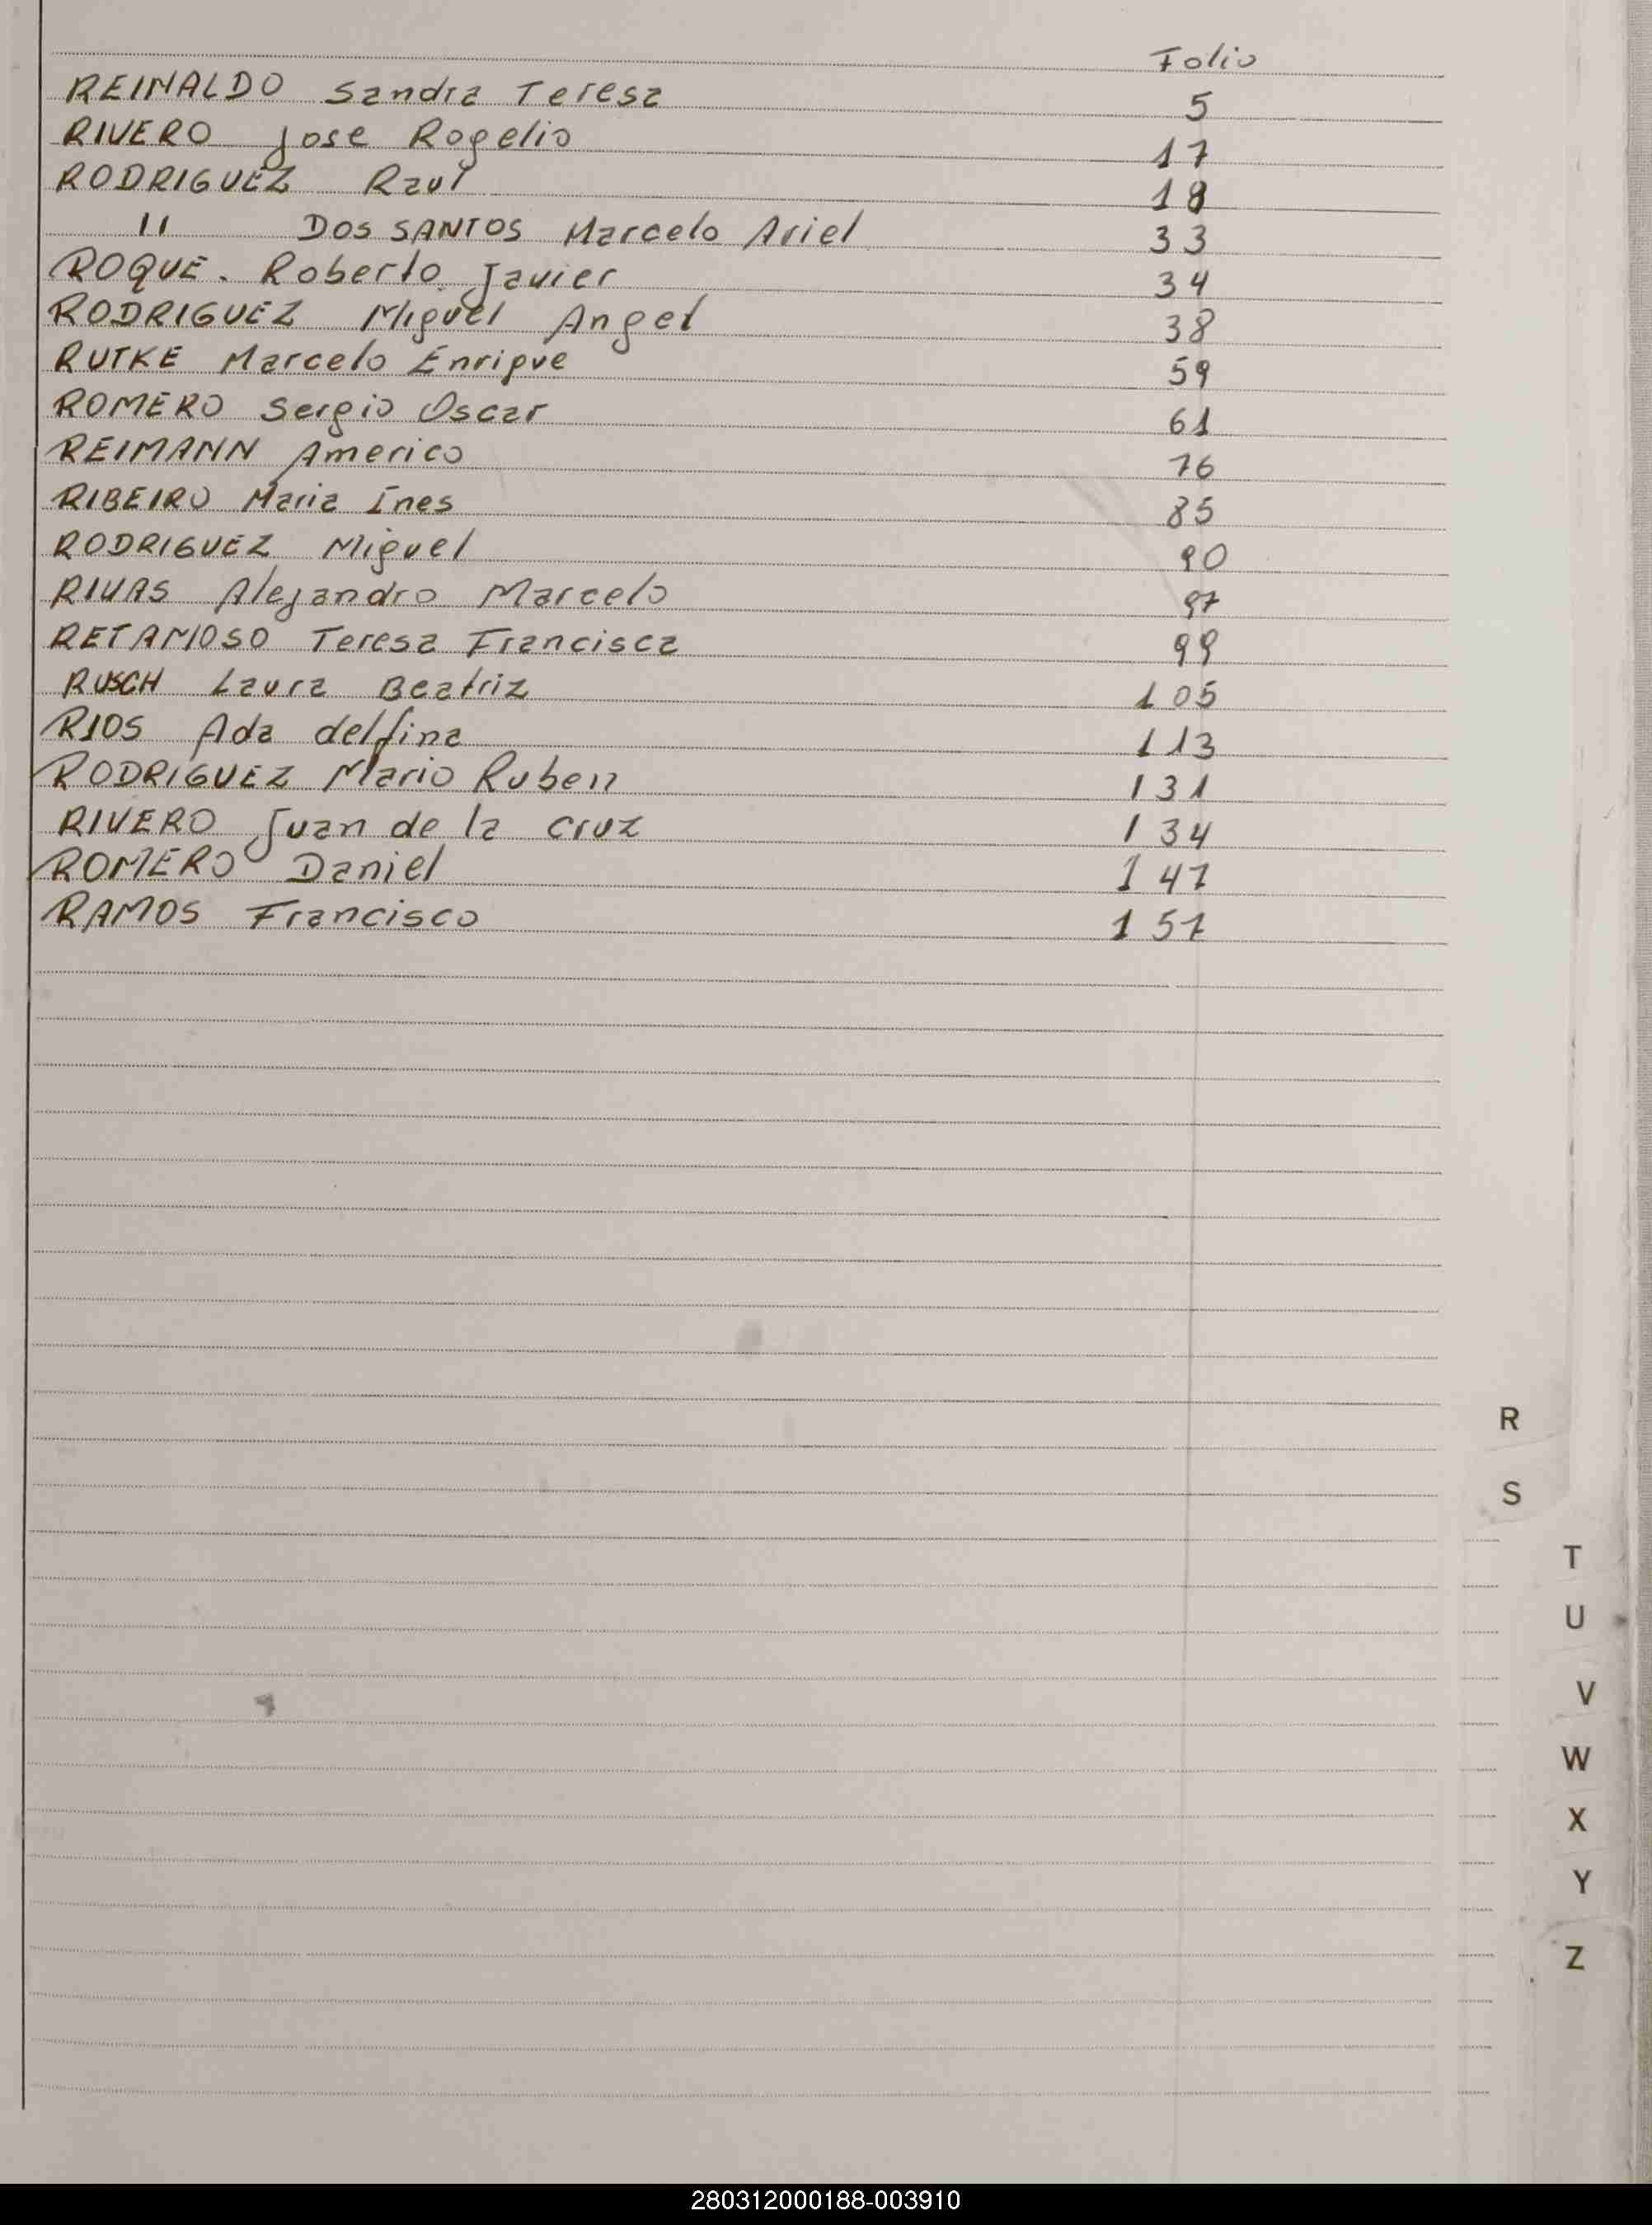 Folio
REINALDO Sandra Teresa 5
RIVERO Jose Rogelio 17
RODRIGUEZ Raul 18
" DOS SANTOS Marcelo Ariel 33
ROQUE. Roberto Javier 34
RODRIGUEZ Miguel Angel 38
RUTKE Marcelo Enrique 59
ROMERO Sergio Oscar 61
REIMANN Americo 76
RIBEIRO Maria Ines 85
RODRIGUEZ Miguel 90
RIVAS Alejandro Marcelo 97
RETAMOSO Teresa Francisca 99
RUSCH Laura Beatriz 105
RIOS Ada delfina 113
RODRIGUEZ Mario Ruben 131
RIVERO Juan de la cruz 134
ROMERO Daniel 147
RAMOS Francisco 157
R
S
T
U
V
W
X
Y
Z
280312000188-003910